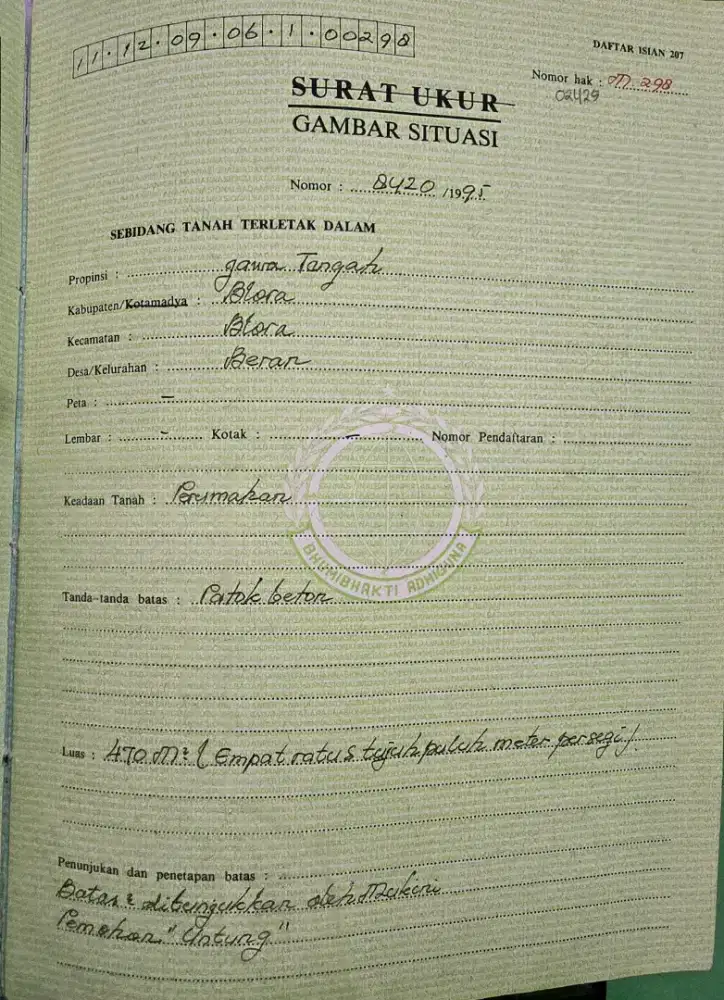 11.12.09.06.1.00298
DAFTAR ISIAN 207
Nomor hak : M. 298
02429
SURAT UKUR
GAMBAR SITUASI
Nomor : 8420 /1995
SEBIDANG TANAH TERLETAK DALAM
Propinsi : Jawa Tangah
Kabupaten/Kotamadya : Blora
Kecamatan : Blora
Desa/Kelurahan : Beran
Peta : –
Lembar : – Kotak : – Nomor Pendaftaran :
Keadaan Tanah : Perumahan
BHUMIBHAKTI ADHIGUNA
Tanda-tanda batas : Patok beton
Luas : 470 M² ( Empat ratus tujuh puluh meter persegi )
Penunjukan dan penetapan batas :
Batas² ditunjukkan oleh
Pemohon "Untung"